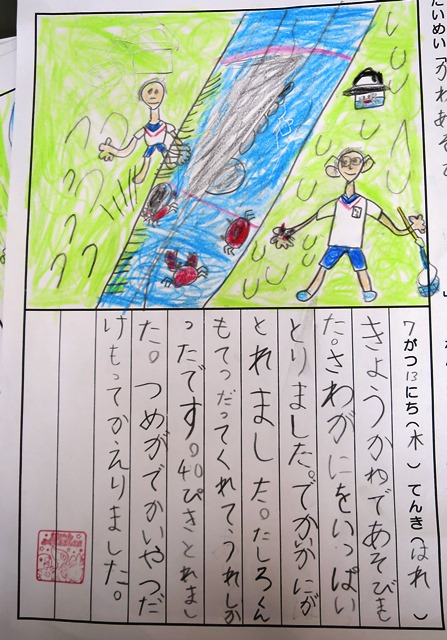 だいめい かわあそ
7がつ13にち(木)てんき(はれ)
きょうかわであそびまし
た。さわがにをいっぱい
とりました。でかかにが
とれました。たしろくん
もてつだってくれて、うれしか
ったです。40ぴきとれまし
た。つめがでかいやつだ
けもってかえりました。